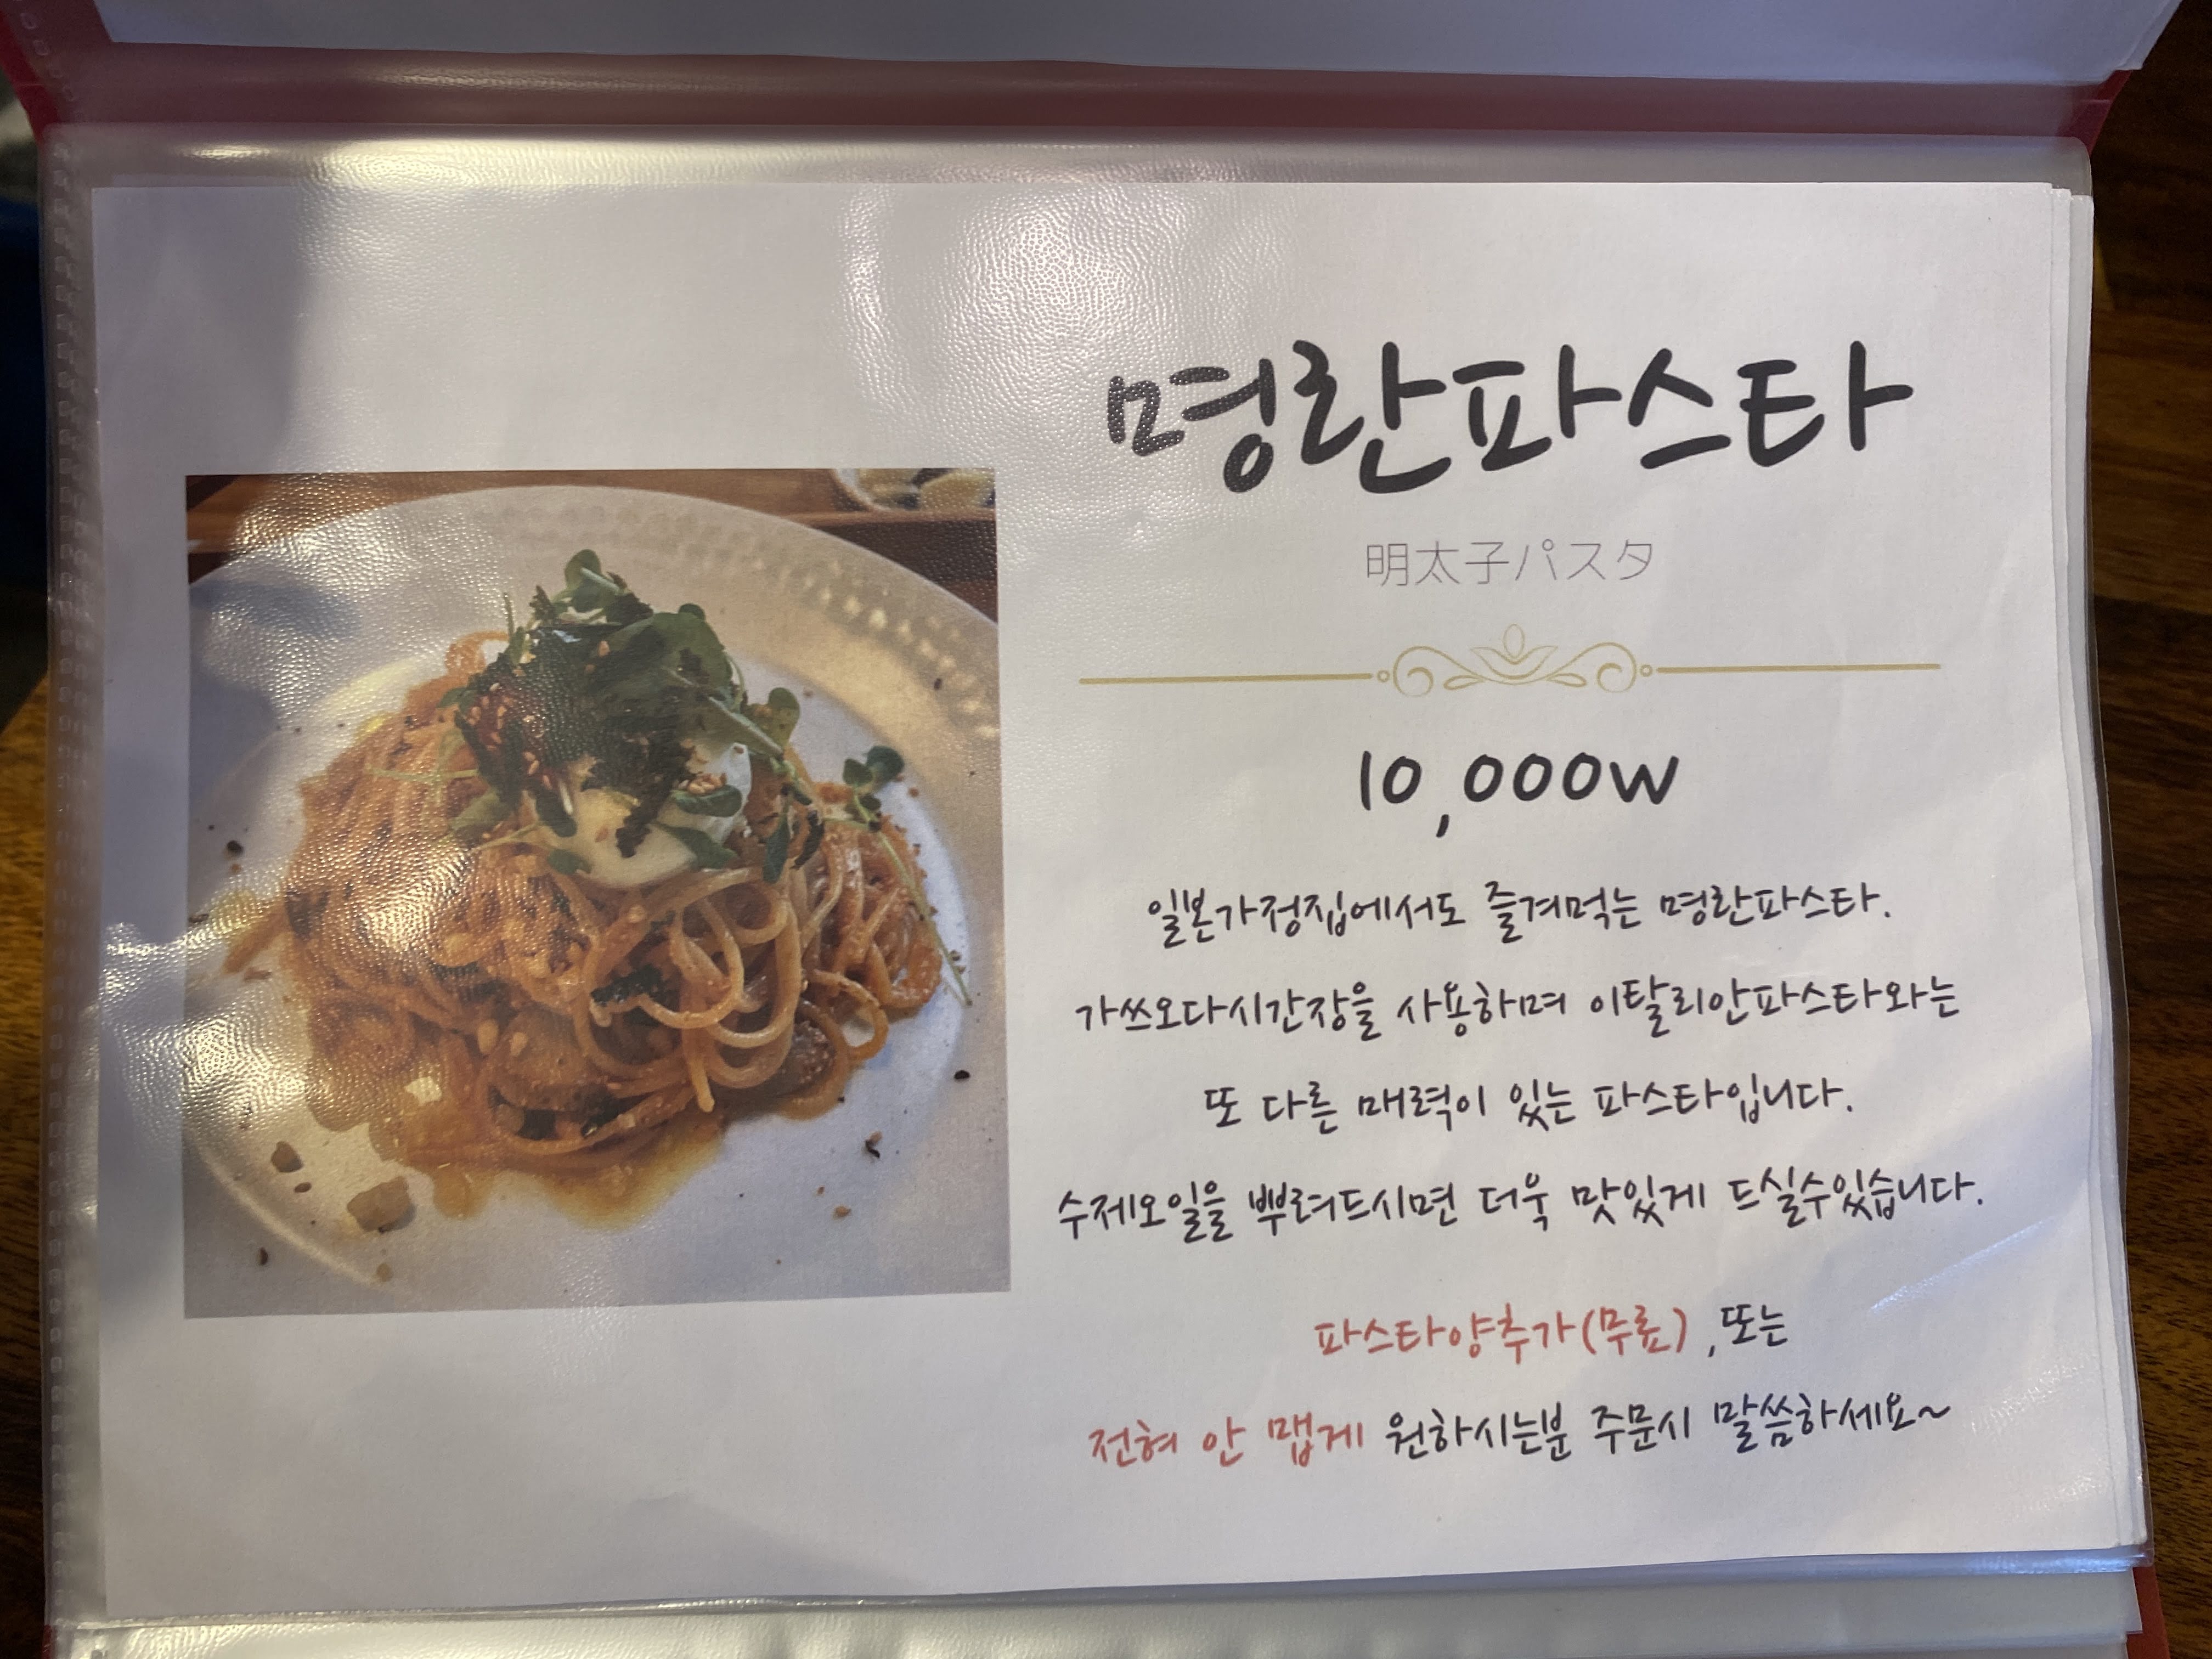 명란파스타
明太子パスタ
10,000w
일본가정집에서도 즐겨먹는 명란파스타.
가쓰오다시간장을 사용하며 이탈리안파스타와는
또 다른 매력이 있는 파스타입니다.
수제오일을 뿌려드시면 더욱 맛있게 드실수있습니다.
파스타양추가(무료) ,또는
전혀 안 맵게 원하시는분 주문시 말씀하세요~